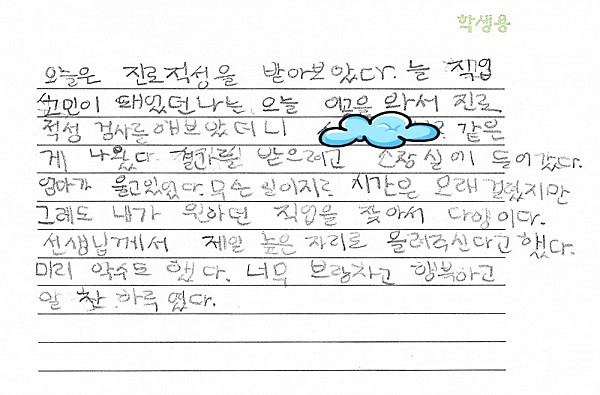 학생용
오늘은 진로적성을 받아보았다. 늘 직업
고민이 돼있던 나는 오늘 와서 진로
적성 검사를 해보았더니 같은
게 나왔다. 결과를 받으려고 소장실에 들어갔다.
엄마가 울고있었다. 무슨 일이지? 시간은 오래 걸렸지만
그래도 내가 원하던 직업을 찾아서 다행이다.
선생님께서 제일 높은 자리로 올려주신다고 했다.
미리 악수도 했다. 너무 보람차고 행복하고
알찬 하루였다.